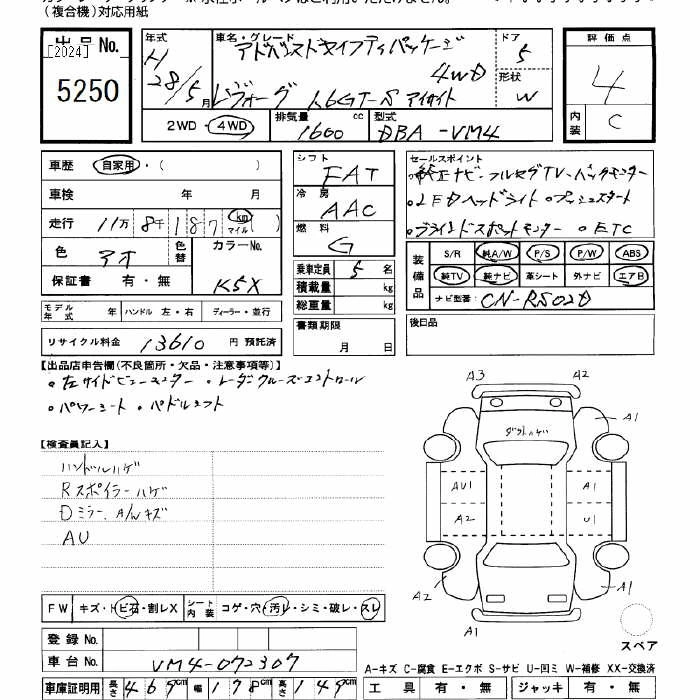 (複合機)対応用紙
出品 No. [2024] 5250
年式 H 28/5 月
車名・グレード アドバンストセイフティパッケージ 4WD
レヴォーグ 1.6GT-S アイサイト
ドア 5
形状 W
2WD・4WD 排気量 1600 cc 型式 DBA-VM4
評価点 4
内装 C
車歴 自家用・( )
車検 年 月
走行 11万 8千 187 km マイル ( )
色 アオ 色替 カラーNo. K5X
保証書 有・無
モデル年式 年 ハンドル 左・右 ディーラー・並行
リサイクル料金 13610 円 預託済
シフト FAT
冷房 AAC
燃料 G
乗車定員 5 名
積載量 kg
総重量 kg
書類期限 月 日
セールスポイント
・純正ナビ・フルセグTV・バックモニター
・LEDヘッドライト・プッシュスタート
・ブラインドスポットモニター ・ETC
装備品 S/R 純A/W P/S P/W ABS
純TV 純ナビ 革シート 外ナビ エアB
ナビ型番: CN-R502D
後日品
【出品店申告欄(不良箇所・欠品・注意事項等)】
・左サイドビューモニター ・レーダークルーズコントロール
・パワーシート ・パドルシフト
【検査員記入】
ハンドルハゲ
Rスポイラーハゲ
Dミラー、A/Wキズ
AU
A3 A2
A1
ダクトハゲ
AU1 A1
A2 U1
A2 A1 A1
スペア
FW キズ・トビ石・割レX シート内装 コゲ・穴・汚レ・シミ・破レ・スレ
登録 No.
車台 No. VM4-072307
車庫証明用 長さ 469cm 幅 178cm 高さ 149cm
A-キズ C-腐食 E-エクボ S-サビ U-凹ミ W-補修 XX-交換済
工具 有・無 ジャッキ 有・無